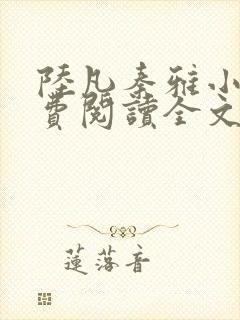 陸凡秦雅小
費閱讀全文
蓮落音